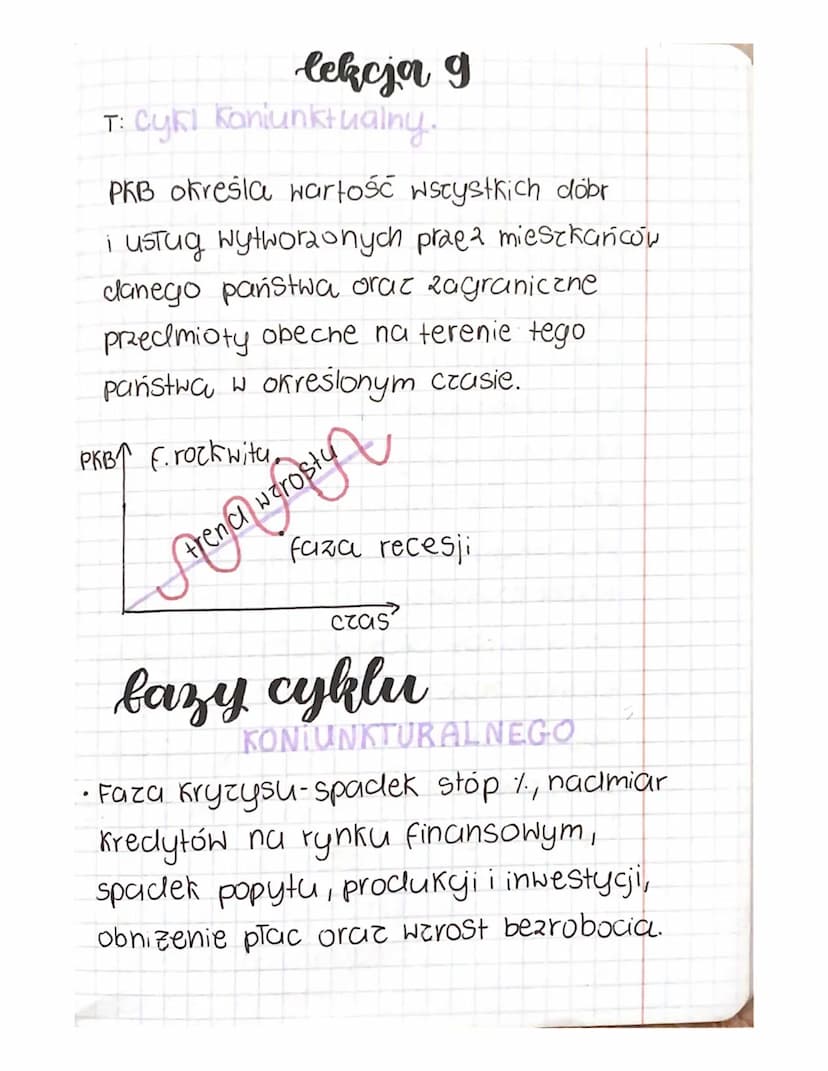 lekcja 9
T: Cykl Koniunktualny.
PKB określa wartość wszystkich dóbr
i usług wytworzonych przez mieszkańców
danego państwa oraz zagraniczne
przedmioty obecne na terenie tego
państwa w określonym czasie.
PKB f. rozkwitu
trend wzrostu
faza recesji
czas
fazy cyklu
KONIUNKTURALNEGO
• Faza kryzysu - spadek stóp %, nadmiar
kredytów na rynku finansowym,
spadek popytu, produkcji i inwestycji,
obniżenie płac oraz wzrost bezrobocia.